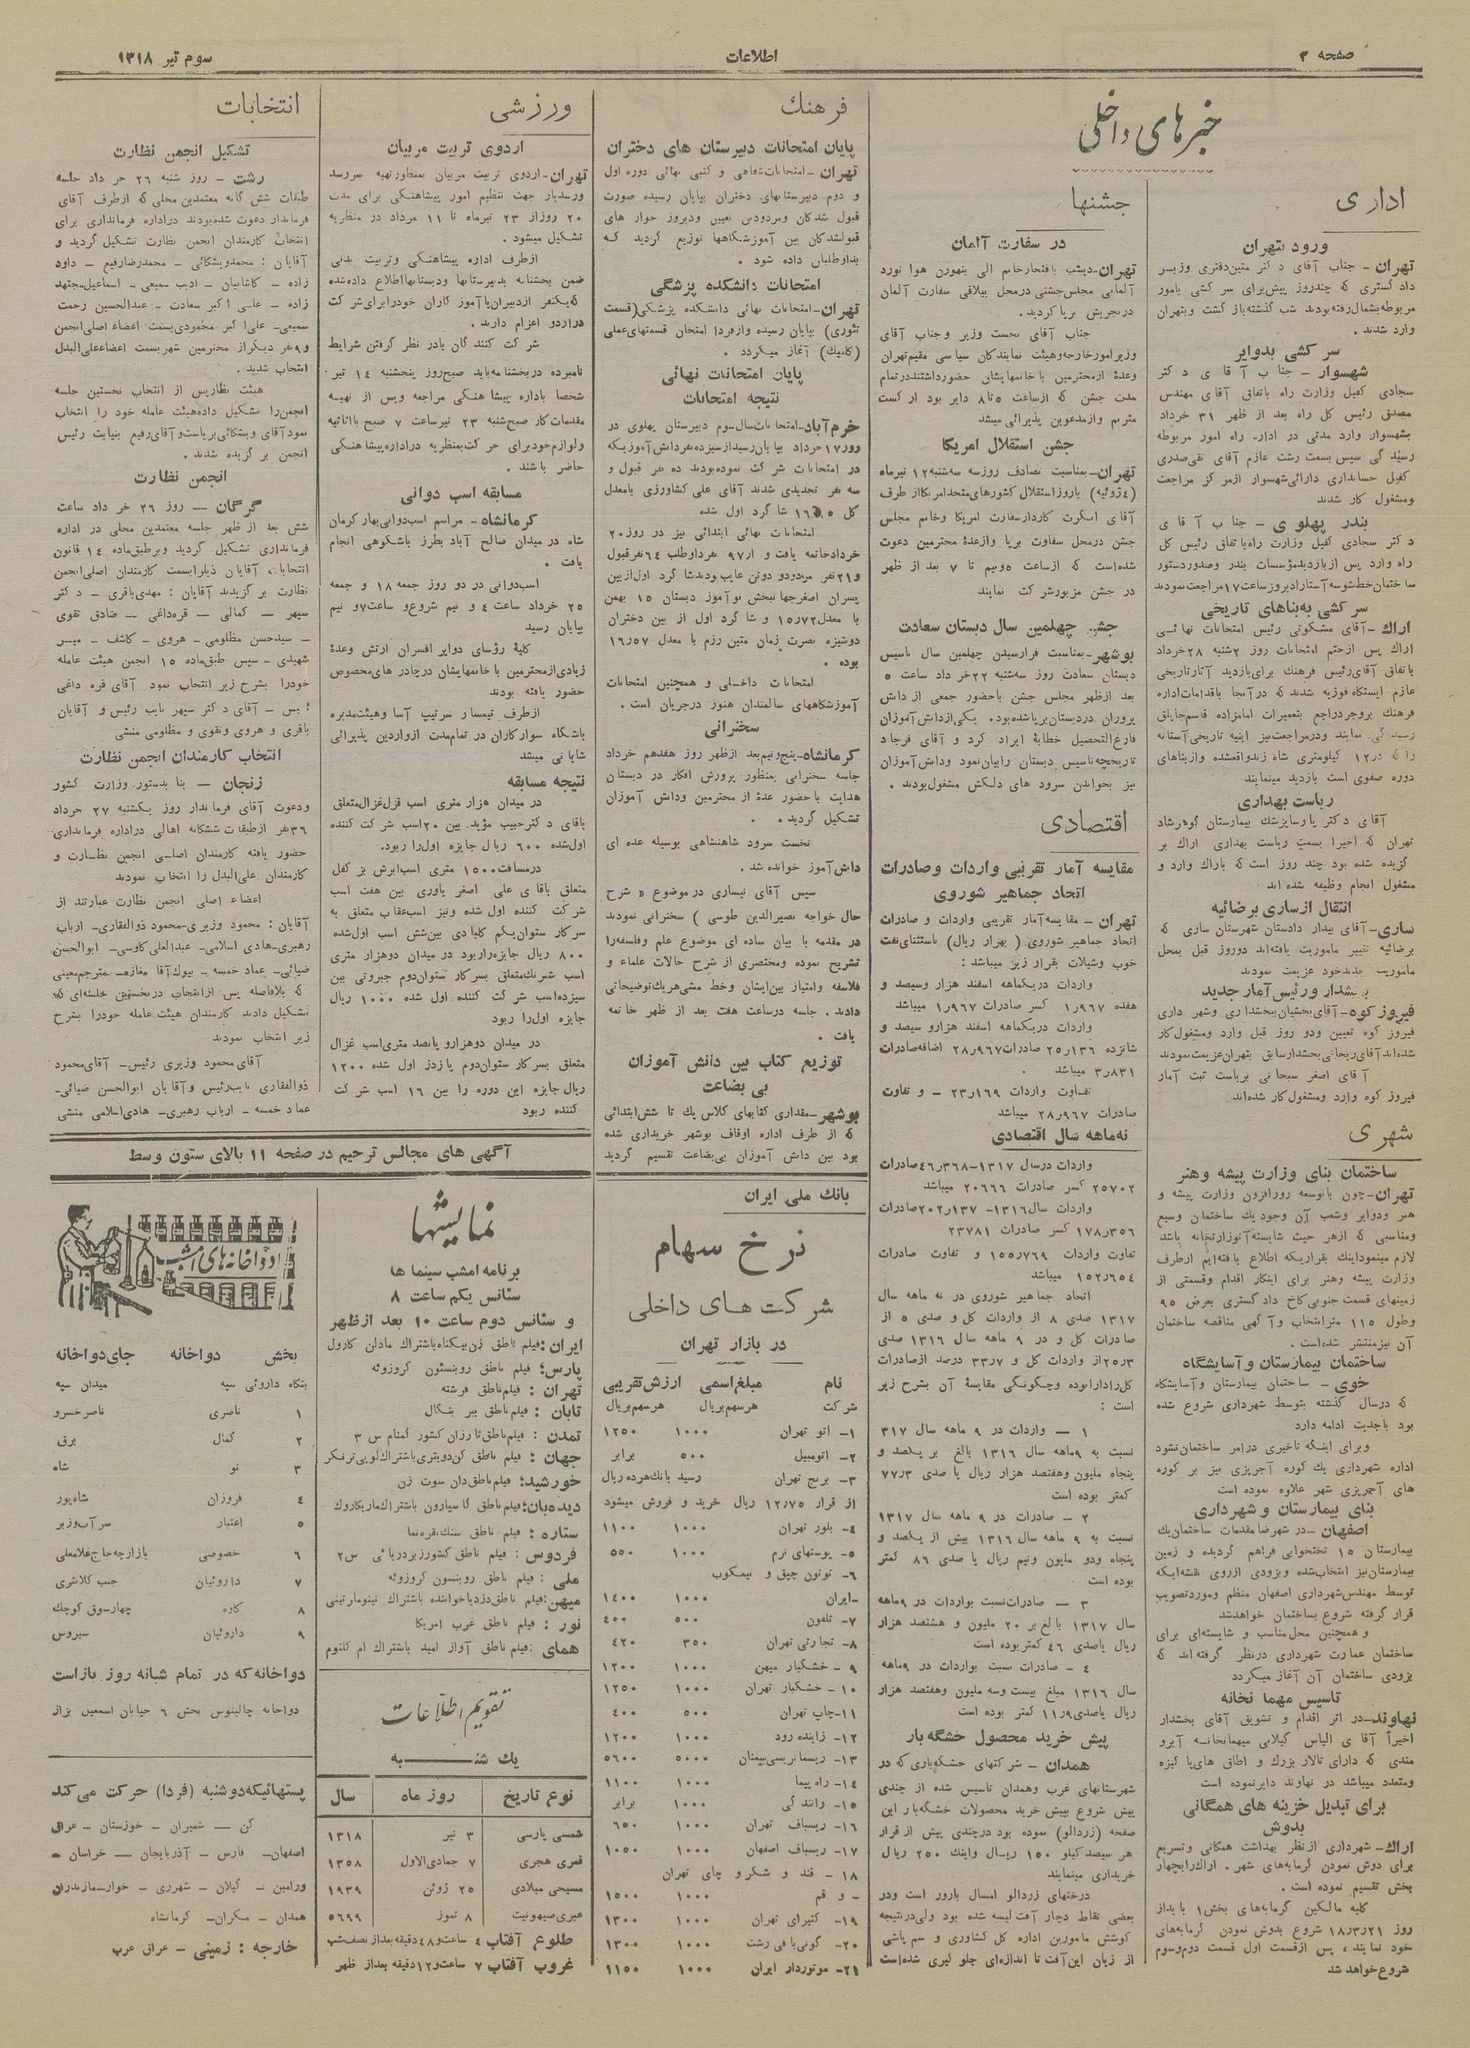 صفحه ۲
اطلاعات
سوم تیر ۱۳۱۸
خبرهای داخلی
اداری
ورود بتهران
تهران - جناب آقای دکتر متین‌دفتری وزیر
دادگستری که چندروز پیش برای سرکشی بامور
مربوطه بشمال رفته بودند شب گذشته بازگشت و بتهران
وارد شدند .
سرکشی بدوایر
شهسوار - جناب آقای دکتر
سجادی کفیل وزارت راه باتفاق آقای مهندس
مصدق رئیس کل راه بعد از ظهر ۳۱ خرداد
بشهسوار وارد مدتی در اداره راه امور مربوطه
رسیدگی سپس بسمت رشت عازم آقای تقی صدری
کفیل حسابداری دارائی شهسوار از مرکز مراجعت
ومشغول کار شدند
بندر پهلوی - جناب آقای
دکتر سجادی کفیل وزارت راه باتفاق رئیس کل
راه وارد پس از بازدید مؤسسات بندر وصدور دستور
ساختمان خط شوسه آستارا دیروز ساعت ۱۷ مراجعت نمودند
سرکشی به بناهای تاریخی
اراک - آقای مشکوتی رئیس امتحانات نهائی
اراک پس از ختم امتحانات روز ۲شنبه ۲۸ خرداد
باتفاق آقای رئیس فرهنگ برای بازدید آثار تاریخی
عازم ایستگاه فوزیه شدند که در آنجا باقدامات اداره
فرهنگ بروجرد راجع بتعمیرات امامزاده قاسم جاپلق
رسیدگی نمایند ودر مراجعت نیز ابنیه تاریخی آستانه
را که در ۱۲ کیلومتری شاه زند واقع شده و از بناهای
دوره صفوی است بازدید مینمایند
ریاست بهداری
آقای دکتر پارسا پزشک بیمارستان گوهرشاد
تهران که اخیرا بسمت ریاست بهداری اراک بر
گزیده شده بود چند روز است که باراک وارد و
مشغول انجام وظیفه شده‌اند
انتقال از ساری برضائیه
ساری - آقای بیدار دادستان شهرستان ساری که
برضائیه تغییر ماموریت یافته‌اند دوروز قبل بمحل
ماموریت جدید خود عزیمت نمودند
بخشدار و رئیس آمار جدید
فیروز کوه - آقای بخشیان ببخشداری و شهرداری
فیروز کوه تعیین ودو روز قبل وارد ومشغول کار
شده‌اند آقای ریحانی بخشدار سابق بتهران عزیمت نمودند
آقای اصغر سبحانی بریاست ثبت آمار
فیروز کوه وارد ومشغول کار شده‌اند
شهری
ساختمان بنای وزارت پیشه وهنر
تهران - چون باتوسعه روز افزون وزارت پیشه و
هنر ودوایر وشعب آن وجود یک ساختمان وسیع
ومناسبی که از هر حیث شایسته آنوزارتخانه باشد
لازم مینمود اینک بقراریکه اطلاع یافته‌ایم از طرف
وزارت پیشه وهنر برای اینکار اقدام وقسمتی از
زمینهای قسمت جنوبی کاخ دادگستری بعرض ۹۵
وطول ۱۱۵ متر انتخاب و آگهی مناقصه ساختمان
آن نیز منتشر شده است .
ساختمان بیمارستان و آسایشگاه
خوی - ساختمان بیمارستان و آسایشگاه
که درسال گذشته بتوسط شهرداری شروع شده
بود باجدیت ادامه دارد
وبرای اینکه تاخیری در امر ساختمان نشود
اداره شهرداری یک کوره آجرپزی نیز بر کوره
های آجرپزی شهر علاوه نموده است
بنای بیمارستان و شهرداری
اصفهان - در شهرضا مقدمات ساختمان یک
بیمارستان ۱۵ تختخوابی فراهم گردیده و زمین
بیمارستان نیز انتخاب شده وبزودی از روی نقشه ایکه
توسط مهندس شهرداری اصفهان منظم و مورد تصویب
قرار گرفته شروع بساختمان خواهد شد
و همچنین محل مناسب و شایسته‌ای برای
ساختمان عمارت شهرداری در نظر گرفته‌اند که
بزودی ساختمان آن آغاز میگردد
تاسیس مهمانخانه
نهاوند - در اثر اقدام و تشویق آقای بخشدار
اخیراً آقای الیاس گیلانی میهمانخانه آبرو
مندی که دارای تالار بزرگ و اطاق های پاکیزه
ومتعدد میباشد در نهاوند دایر نموده است
برای تبدیل خزینه های همگانی
بدوش
اراک - شهرداری از نظر بهداشت همگانی و تسریع
برای دوش نمودن گرمابه‌های شهر . اراک را بچهار
بخش تقسیم نموده است .
کلیه مالکین گرمابه‌های بخش ۱ باید از
روز ۱۸/۳/۲۱ شروع بدوش نمودن گرمابه‌های
خود نمایند ، پس از قسمت اول قسمت دوم وسوم
شروع خواهد شد
جشنها
در سفارت آلمان
تهران - دیشب بافتخار خاتم الی بتهوون هوا نورد
آلمانی مجلس جشنی در محل ییلاقی سفارت آلمان
در تجریش برپا گردید .
جناب آقای نخست وزیر و جناب آقای
وزیر امور خارجه و هیئت نمایندگان سیاسی مقیم تهران
وعدهٔ از محترمین باخانمهایشان حضور داشتند در تمام
مدت جشن که از ساعت ۵ تا ۸ دایر بود ارکست
مترنم و از مدعوین پذیرائی میشد
جشن استقلال امریکا
تهران - بمناسبت تصادف روز سه سه‌شنبه ۱۲ تیرماه
(۴ ژوئیه) باروز استقلال کشورهای متحد امریکا از طرف
آقای انگرت کاردار سفارت امریکا وخانم مجلس
جشن در محل سفارت برپا و از عدهٔ محترمین دعوت
شده است که از ساعت ۵ ونیم تا ۷ بعد از ظهر
در جشن مزبور شرکت نمایند
جشن چهلمین سال دبستان سعادت
بوشهر - بمناسبت فرارسیدن چهلمین سال تاسیس
دبستان سعادت روز سه‌شنبه ۲۲ خرداد ساعت ۵
بعد از ظهر مجلس جشن باحضور جمعی از دانش
پروران در دبستان برپا شده بود . یکی از دانش آموزان
فارغ‌التحصیل خطابهٔ ایراد کرد و آقای فرجاد
تاریخچه تاسیس دبستان را بیان نمود ودانش آموزان
نیز بخواندن سرود های دلکش مشغول بودند .
اقتصادی
مقایسه آمار تقریبی واردات وصادرات
اتحاد جماهیر شوروی
تهران - مقایسه آمار تقریبی واردات و صادرات
اتحاد جماهیر شوروی ( بهزار ریال ) باستثنای نفت
خوب وشیلات بقرار زیر میباشد :
واردات دریکماهه اسفند هزار وسیصد و
هفده ۱٫۹۶۷ کسر صادرات ۱٫۹۶۷ میباشد
واردات دریکماهه اسفند هزار و سیصد و
شانزده ۲۵٫۱۳۶ صادرات ۲۸٫۹۶۷ اضافه صادرات
۳٫۸۳۱ میباشد .
تفاوت واردات ۲۳٫۱۶۹ - و تفاوت
صادرات ۲۸٫۹۶۷ میباشد
نه‌ماهه سال اقتصادی
واردات درسال ۱۳۱۷-۴۶٫۳۶۸ صادرات
۲۵۷۰۲ کسر صادرات ۲۰۶۶۶ میباشد
واردات سال ۱۳۱۶- ۲۰۲٫۱۳۷ صادرات
۱۷۸٫۳۵۶ کسر صادرات ۲۳۷۸۱
تفاوت واردات ۱۵۵٫۷۶۹ و تفاوت صادرات
۱۵۲٫۶۵۴ میباشد
اتحاد جماهیر شوروی در نه ماهه سال
۱۳۱۷ صدی ۸ از واردات کل و صدی ۵ از
صادرات کل و در ۹ ماهه سال ۱۳۱۶ صدی
۲۵٫۳ از واردات کل و ۳۳٫۷ درصد از صادرات
کل را دارا بوده وچگونگی مقایسهٔ آن بشرح زیر
است :
۱ - واردات در ۹ ماهه سال ۳۱۷
نسبت به ۹ماهه سال ۱۳۱۶ بالغ بر یکصد و
پنجاه ملیون وهفتصد هزار ریال یا صدی ۷۷٫۳
کمتر بوده است
۲ - صادرات در ۹ ماهه سال ۱۳۱۷
نسبت به ۹ ماهه سال ۱۳۱۶ بیش از یکصد و
پنجاه ودو ملیون ونیم ریال یا صدی ۸۶ کمتر
بوده است
۳ - صادرات نسبت بواردات در ۹ ماهه
سال ۱۳۱۷ بالغ بر ۲۰ ملیون و هشتصد هزار
ریال یا صدی ۴۶ کمتر بوده است
۴ - صادرات نسبت بواردات در ۹ ماهه
سال ۱۳۱۶ مبلغ بیست وسه ملیون وهفتصد هزار
ریال یا صدی ۱۱٫۹ کمتر بوده است
پیش خرید محصول خشگه بار
همدان - شرکتهای خشکه باری که در
شهرستانهای غرب وهمدان تاسیس شده از چندی
پیش شروع بپیش خرید محصولات خشگه بار این
صفحه (زردالو) نموده بود در چندی پیش از قرار
هر سیصد کیلو ۱۵۰ ریال و اینک ۲۵۰ ریال
خریداری مینمایند
درختهای زردالو امسال بارور است ودر
بعضی نقاط دچار آفت لیسه شده بود ولی در نتیجه
کوشش مامورین اداره کل کشاوری و سم پاشی
از زیان این آفت تا اندازه‌ای جلوگیری شده است
فرهنک
پایان امتحانات دبیرستان های دختران
تهران - امتحانات شفاهی و کتبی نهائی دوره اول
و دوم دبیرستانهای دختران بپایان رسیده صورت
قبول شدگان ومردودین تعیین و دیروز جواز های
قبولشدگان بین آموزشگاهها توزیع گردید که
بداوطلبان داده شود .
امتحانات دانشکده پزشگی
تهران - امتحانات نهائی دانشکده پزشکی (قسمت
تئوری) بپایان رسیده واز فردا امتحان قسمتهای عملی
(کلنیک) آغاز میگردد .
پایان امتحانات نهائی
نتیجه امتحانات
خرم آباد - امتحانات سال سوم دبیرستان پهلوی در
روز ۱۷ خرداد بپایان رسید از سیزده نفر دانش آموزیکه
در امتحانات شرکت نموده بودند ده نفر قبول و
سه نفر تجدیدی شدند آقای علی کشاورزی بامعدل
کل ۱۶٫۵ شاگرد اول شده
امتحانات نهائی ابتدائی نیز در روز ۲۰
خرداد خاتمه یافت و از ۹۷ نفر داوطلب ۶۴ نفر قبول
و ۲۱ نفر مردود و دوتن غایب بودند شاگرد اول از بین
پسران اصغر جهانبخش نوآموز دبستان ۱۵ بهمن
با معدل ۱۵٫۷۲ و شاگرد اول از بین دختران
دوشیزه نصرت زمان متین رزم با معدل ۱۶٫۵۷
بوده .
امتحانات داخلی و همچنین امتحانات
آموزشگاههای سالمندان هنوز درجریان است .
سخنرانی
کرمانشاه - پنج‌ونیم بعد از ظهر روز هفدهم خرداد
جلسه سخنرانی بمنظور پرورش افکار در دبستان
هدایت با حضور عدهٔ از محترمین ودانش آموزان
تشکیل گردید .
نخست سرود شاهنشاهی بوسیله عده ای
دانش آموز خوانده شد
سپس آقای نیساری در موضوع « شرح
حال خواجه نصیرالدین طوسی ) سخنرانی نمودند
در مقدمه با بیان ساده ای موضوع علم وفلسفه را
تشریح نموده ومختصری از شرح حالات علماء و
فلاسفه و امتیاز بین ایشان وخط مشی هریک توضیحاتی
دادند . جلسه در ساعت هفت بعد از ظهر خاتمه
یافت .
توزیع کتاب بین دانش آموزان
بی بضاعت
بوشهر - مقداری کتابهای کلاس یک تا شش ابتدائی
که از طرف اداره اوقاف بوشهر خریداری شده
بود بین دانش آموزان بی‌بضاعت تقسیم گردید
بانک ملی ایران
نرخ سهام
شرکت های داخلی
در بازار تهران
نام مبلغ اسمی ارزش تقریبی
شرکت هرسهم بریال هرسهم بریال
۱- اتو تهران ۱۰۰۰ ۱۲۵۰
۲- اتومبیل ۵۰۰ برابر
۳- برنج تهران رسید بانک هرده ریال
از قرار ۱۲/۷۵ ریال خرید و فروش میشود
۴- بلور تهران ۱۰۰۰ ۱۱۰۰
۵- پوستهای نرم ۱۰۰۰ ۵۵۰
۶- توتون چپق و تیمکوب
-ایران ۱۰۰۰ ۱۴۰۰
۷- تلفون ۵۰۰ ۴۰۰
۸- تجارتی تهران ۳۵۰ ۴۲۰
۹ - خشگبار میهن ۱۰۰۰ ۱۲۰۰
۱۰ - خشکبار تهران ۱۰۰۰ ۱۲۵۰
۱۱- چاپ تهران ۵۰۰ ۴۰۰
۱۲- زاینده رود ۱۰۰۰ ۱۲۰۰
۱۳- ریسمانریسی سمنان ۵۰۰۰ ۵۶۰۰
۱۴- راه پیما ۱۰۰۰ ۱۱۰۰
۱۵- رانندگی ۱۰۰۰ برابر
۱۶- ریسباف تهران ۱۰۰۰ ۶۵۰
۱۷- ریسباف اصفهان ۱۰۰۰ ۱۰۵۰
۱۸ - قند و شکر و چای تهران
- و قم ۱۰۰۰ ۱۵۰۰
۱۹- کتیرای تهران ۱۰۰۰ ۱۳۰۰
۲۰- گونی‌بافی رشت ۱۰۰۰ ۱۳۰۰
۲۱- موتوردار ایران ۱۰۰۰ ۱۱۵۰
ورزشی
اردوی تربیت مربیان
تهران - اردوی تربیت مربیان بمنظور تهیه سررسد
ورسدیار جهت تنظیم امور پیشاهنگی برای مدت
۲۰ روز از ۲۳ تیرماه تا ۱۱ مرداد در منظریه
تشکیل میشود .
از طرف اداره پیشاهنگی و تربیت بدنی
ضمن بخشنامه بدبیرستانها ودبستانها اطلاع داده شده
که یکنفر از دبیران یا آموزگاران خود را برای شرکت
در اردو اعزام دارند .
شرکت کنندگان بادر نظر گرفتن شرایط
نامبرده در بخشنامه باید صبح روز پنجشنبه ۱۴ تیر
شخصا باداره پیشاهنگی مراجعه وپس از تهیه
مقدمات کار صبح شنبه ۲۳ تیر ساعت ۷ صبح با اثاثیه
ولوازم خود برای حرکت بمنظریه در اداره پیشاهنگی
حاضر باشند .
مسابقه اسب دوانی
کرمانشاه - مراسم اسب‌دوانی بهار کرمان
شاه در میدان صالح آباد بطرز باشکوهی انجام
یافت .
اسب‌دوانی در دو روز جمعه ۱۸ و جمعه
۲۵ خرداد ساعت ۴ و نیم شروع و ساعت ۷ و نیم
بپایان رسید
کلیهٔ رؤسای دوایر افسران ارتش وعدهٔ
زیادی از محترمین باخانمهایشان در چادر های مخصوص
حضور یافته بودند
از طرف تیمسار سرتیپ آسا وهیئت مدیره
باشگاه سوارکاران در تمام مدت از واردین پذیرائی
شایانی میشد
نتیجه مسابقه
در میدان هزار متری اسب قزل غزال متعلق
باقای دکتر حبیب مؤید بین ۲۰ اسب شرکت کننده
اول شده ۶۰۰ ریال جایزه اول را ربود.
در مسافت ۱۵۰۰ متری اسب ابرش بزکفل
متعلق باقای علی اصغر یاوری بین هفت اسب
شرکت کننده اول شده ونیز اسب عقاب متعلق به
سرکار ستوان یکم کلبادی بین شش اسب اول شده
۸۰۰ ریال جایزه را ربود در میدان دوهزار متری
اسب شرنک متعلق بسرکار ستوان دوم جبروتی بین
سیزده اسب شرکت کننده اول شده ۱۰۰۰ ریال
جایزه اول را ربود
در میدان دوهزار و پانصد متری اسب غزال
متعلق بسرکار ستوان دوم پازدز اول شده ۱۲۰۰
ریال جایزه این دوره را بین ۱۶ اسب شرکت
کننده ربود
انتخابات
تشکیل انجمن نظارت
رشت - روز شنبه ۲۶ خرداد جلسه
طبقات شش گانه معتمدین محلی که از طرف آقای
فرماندار دعوت شده بودند در اداره فرمانداری برای
انتخاب کارمندان انجمن نظارت تشکیل گردید و
آقایان : محمد ویشکائی - محمد رضا رفیع - داود
زاده - کاشانیان - ادیب سمیعی - اسماعیل مجتهد
زاده - علی اکبر سعادت - عبدالحسین رحمت
سمیعی - علی اکبر محمودی بسمت اعضاء اصلی انجمن
و ۹ نفر دیگر از محترمین شهر بسمت اعضاء علی‌البدل
انتخاب شدید .
هیئت نظار پس از انتخاب نخستین جلسه
انجمن را تشکیل داده هیئت عامله خود را انتخاب
نمود آقای ویشکائی بریاست و آقای رفیع بنیابت رئیس
انجمن برگزیده شدند .
انجمن نظارت
گرگان - روز ۲۶ خرداد ساعت
شش بعد از ظهر جلسه معتمدین محلی در اداره
فرمانداری تشکیل گردید و بر طبق ماده ۱۴ قانون
انتخابات آقایان ذیل را بسمت کارمندان اصلی انجمن
نظارت برگزیدند آقایان : مهدی باقری - دکتر
سپهر - کمالی - قره‌داغی - صادق تقوی
- سید حسن مظلومی - هروی - کاشف - میر
شهیدی - سپس طبق ماده ۱۵ انجمن هیئت عامله
خود را بشرح زیر انتخاب نمود آقای قره داغی
رئیس - آقای دکتر سپهر نایب رئیس و آقایان
باقری و هروی وتقوی و مظلومی منشی
انتخاب کارمندان انجمن نظارت
زنجان - بنا بدستور وزارت کشور
ودعوت آقای فرماندار روز یکشنبه ۲۷ خرداد
۳۶ نفر از طبقات ششگانه اهالی در اداره فرمانداری
حضور یافته کارمندان اصلی انجمن نظارت و
کارمندان علی‌البدل را انتخاب نمودند
اعضاء اصلی انجمن نظارت عبارتند از
آقایان : محمود وزیری - محمود ذوالفقاری - ارباب
رهبری - هادی اسلامی - عبدالعلی کاوسی - ابوالحسن
ضیائی - عماد خمسه - بیوک آقا مغازه - مترجم معینی
که بلافاصله پس از انتخاب در نخستین جلسه‌ای که
تشکیل دادند کارمندان هیئت عامله خود را بشرح
زیر انتخاب نمودند
آقای محمود وزیری رئیس - آقای محمود
ذوالفقاری نایب رئیس و آقایان ابوالحسن ضیائی -
عماد خمسه - ارباب رهبری - هادی اسلامی منشی
آگهی های مجالس ترحیم در صفحه ۱۱ بالای ستون وسط
نمایشها
برنامه امشب سینما ها
سئانس یکم ساعت ۸
و سئانس دوم ساعت ۱۰ بعد از ظهر
ایران : فیلم ناطق زن بیگناه باشتراک مادلن کارول
پارس : فیلم ناطق روبنسون کروزوئه
تهران : فیلم ناطق فرشته
تابان : فیلم ناطق ببر بنگال
تمدن : فیلم ناطق تارزان کشور گمنام س ۳
جهان : فیلم ناطق کن دوپتری باشتراک لویی ترنکر
خورشید : فیلم ناطق دان سوت زن
دیده‌بان : فیلم ناطق گاسپارون باشتراک ماریکاروک
ستاره : فیلم ناطق سنک نقره نما
فردوس : فیلم ناطق کشور زیر دریائی س۲
ملی : فیلم ناطق روبنسون کروزوئه
میهن : فیلم ناطق دزد یاخواننده باشتراک نینومارتینی
نور : فیلم ناطق غرب امریکا
همای : فیلم ناطق آواز امید باشتراک ام کلثوم
تقویم اطلاعات
یک شنبه
نوع تاریخ روز ماه سال
شمسی پارسی ۳ تیر ۱۳۱۸
قمری هجری ۷ جمادی‌الاول ۱۳۵۸
مسیحی میلادی ۲۵ ژوئن ۱۹۳۹
عبری صیهونیت ۸ تموز ۵۶۹۹
طلوع آفتاب ۴ ساعت و ۴۸ دقیقه بعد از نصف شب
غروب آفتاب ۷ ساعت و ۱۲ دقیقه بعد از ظهر
دواخانه‌های امشب
بخش دواخانه جای دواخانه
بنگاه داروئی سپه میدان سپه
۱ ناصری ناصر خسرو
۲ کمال برق
۳ نو شاه
۴ فروزان شاهپور
۵ اعتبار سرآب وزیر
۶ خصوصی بازارچه حاج غلامعلی
۷ داروئیان جنب کلانتری
۸ کاوه چهارسوق کوچک
۹ داروئیان سیروس
دواخانه که در تمام شبانه روز باز است
دواخانه چالینوس بخش ۶ خیابان اسمعیل بزاز
پستهائیکه دوشنبه (فردا) حرکت می کند
کن - شمیران - خوزستان - عراق
اصفهان - فارس - آذربایجان - خراسان -
ورامین - گیلان - شهرری - خوار - مازندران
همدان - مکران - کرمانشاه
خارجه : زمینی - عراق عرب